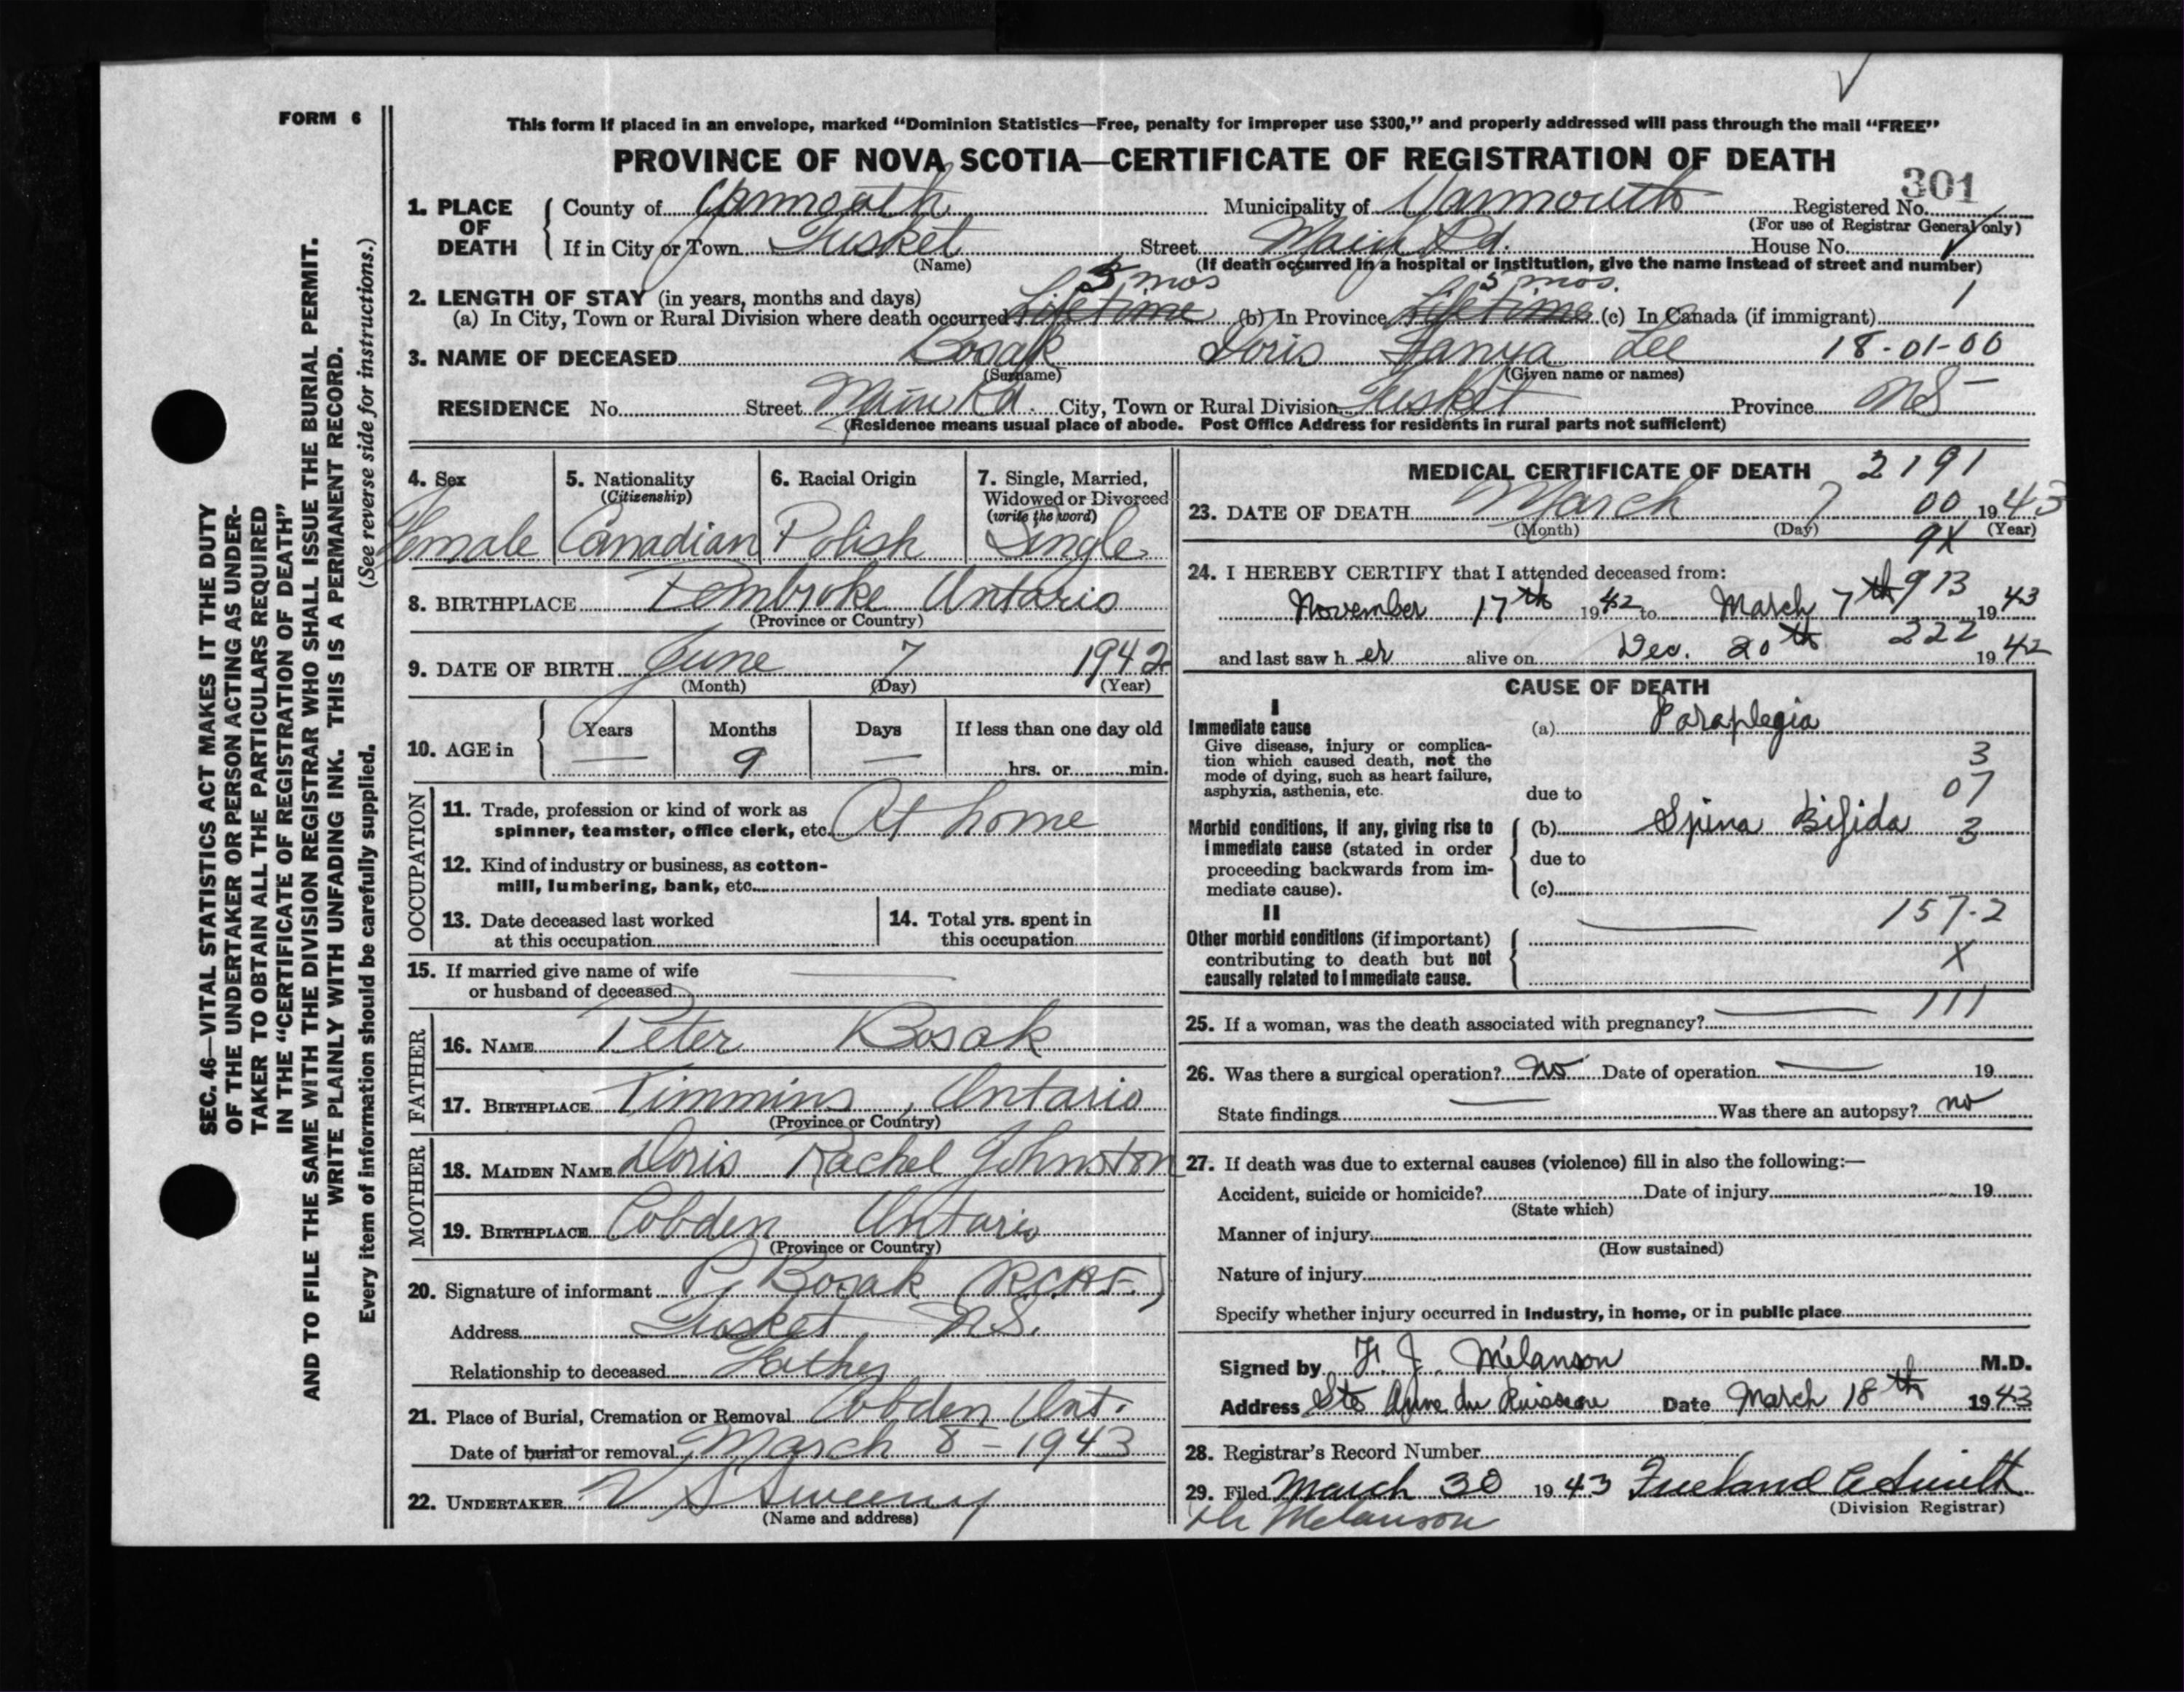 FORM 6
This form if placed in an envelope, marked “Dominion Statistics—Free, penalty for improper use $300,” and properly addressed will pass through the mail “FREE”
PROVINCE OF NOVA SCOTIA—CERTIFICATE OF REGISTRATION OF DEATH
301
1. PLACE OF DEATH County of Yarmouth Municipality of Yarmouth Registered No.
(For use of Registrar General only)
If in City or Town Tusket Street Main Rd. House No.
(Name) (If death occurred in a hospital or institution, give the name instead of street and number)
3 mos 5 mos.
2. LENGTH OF STAY (in years, months and days)
(a) In City, Town or Rural Division where death occurred Life time (b) In Province Life time (c) In Canada (if immigrant) 1
3. NAME OF DECEASED Bosak Doris Tanya Lee 18-01-00
(Surname) (Given name or names)
RESIDENCE No. Street Main Rd. City, Town or Rural Division Tusket Province NS
(Residence means usual place of abode. Post Office Address for residents in rural parts not sufficient)
4. Sex
Female
5. Nationality
(Citizenship)
Canadian
6. Racial Origin
Polish
7. Single, Married,
Widowed or Divorced
(write the word)
Single
8. BIRTHPLACE Pembroke Ontario
(Province or Country)
9. DATE OF BIRTH June 7 1942
(Month) (Day) (Year)
10. AGE in Years — Months 9 Days — If less than one day old
hrs. or min.
OCCUPATION
11. Trade, profession or kind of work as
spinner, teamster, office clerk, etc. At home
12. Kind of industry or business, as cotton-
mill, lumbering, bank, etc.
13. Date deceased last worked
at this occupation
14. Total yrs. spent in
this occupation
15. If married give name of wife
or husband of deceased
FATHER
16. NAME Peter Bosak
17. BIRTHPLACE Timmins, Ontario
(Province or Country)
MOTHER
18. MAIDEN NAME Doris Rachel Johnston
19. BIRTHPLACE Cobden Ontario
(Province or Country)
20. Signature of informant P Bosak (RCAF.)
Address Tusket N.S.
Relationship to deceased Father
21. Place of Burial, Cremation or Removal Cobden Ont.
Date of burial or removal March 8 - 1943
22. UNDERTAKER V S Sweeny
(Name and address)
MEDICAL CERTIFICATE OF DEATH 2191
23. DATE OF DEATH March 7 00 1943
(Month) (Day) (Year)
9X
24. I HEREBY CERTIFY that I attended deceased from:
913
November 17th 1942 to March 7th 1943
222
and last saw her alive on Dec. 20th 1942
CAUSE OF DEATH
I
Immediate cause (a) Paraplegia
Give disease, injury or complica-
tion which caused death, not the
mode of dying, such as heart failure,
asphyxia, asthenia, etc.
3
due to 07
Morbid conditions, if any, giving rise to
immediate cause (stated in order
proceeding backwards from im-
mediate cause).
(b) Spina Bifida 3
due to
(c)
II
157-2
Other morbid conditions (if important)
contributing to death but not
causally related to immediate cause.
X
111
25. If a woman, was the death associated with pregnancy? —
26. Was there a surgical operation? No Date of operation — 19
State findings — Was there an autopsy? no
27. If death was due to external causes (violence) fill in also the following:—
Accident, suicide or homicide? Date of injury 19
(State which)
Manner of injury
(How sustained)
Nature of injury
Specify whether injury occurred in industry, in home, or in public place
Signed by F. J. Melanson M.D.
Address Ste Anne du Ruisseau Date March 18th 1943
28. Registrar's Record Number
29. Filed March 30 1943 Freeland E Smith
(Division Registrar)
Dr Melanson
SEC. 46—VITAL STATISTICS ACT MAKES IT THE DUTY
OF THE UNDERTAKER OR PERSON ACTING AS UNDER-
TAKER TO OBTAIN ALL THE PARTICULARS REQUIRED
IN THE “CERTIFICATE OF REGISTRATION OF DEATH”
AND TO FILE THE SAME WITH THE DIVISION REGISTRAR WHO SHALL ISSUE THE BURIAL PERMIT.
WRITE PLAINLY WITH UNFADING INK. THIS IS A PERMANENT RECORD.
Every item of information should be carefully supplied. (See reverse side for instructions.)